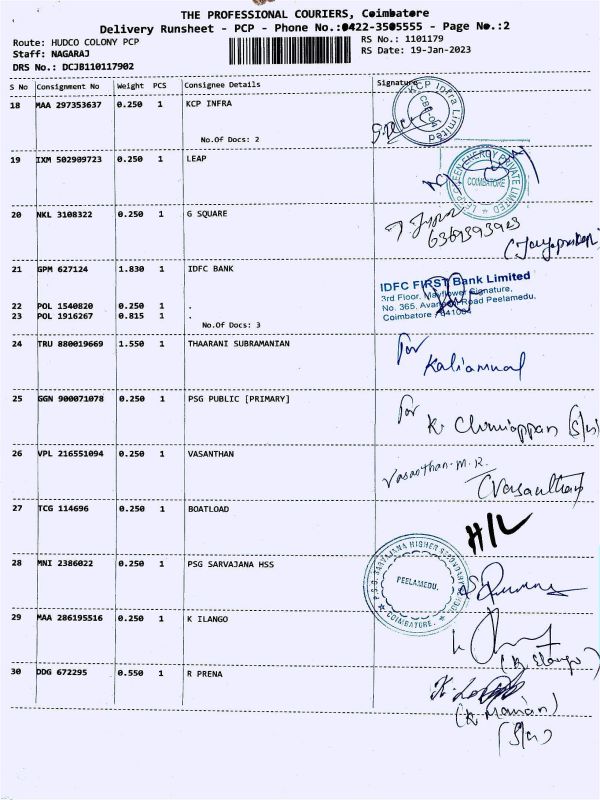 THE PROFESSIONAL COURIERS, Coimbatore
Delivery Runsheet - PCP - Phone No.:0422-3505555 - Page No.:2
Route: HUDCO COLONY PCP
RS No.: 1101179
Staff: NAGARAJ
RS Date: 19-Jan-2023
DRS No.: DCJB110117902
S No Consignment No Weight PCS Consignee Details Signature
18 MAA 297353637 0.250 1 KCP INFRA
KCP Infra Limited
No.Of Docs: 2
19 IXM 502909723 0.250 1 LEAP
GREEN ENERGY PRIVATE LIMITED
COIMBATORE
20 NKL 3108322 0.250 1 G SQUARE
6369393923
(Jayaprakash)
21 GPM 627124 1.830 1 IDFC BANK
IDFC FIRST Bank Limited
3rd Floor, Mayflower Signature,
22 POL 1540820 0.250 1 .
No. 365, Avanashi Road Peelamedu,
23 POL 1916267 0.815 1 .
Coimbatore - 641004
No.Of Docs: 3
24 TRU 880019669 1.550 1 THAARANI SUBRAMANIAN
for
Kaliammal
25 GGN 900071078 0.250 1 PSG PUBLIC [PRIMARY]
for
K. Chinniappan (S/n)
26 VPL 216551094 0.250 1 VASANTHAN
Vasanthan.M.R.
27 TCG 114696 0.250 1 BOATLOAD
H/L
28 MNI 2386022 0.250 1 PSG SARVAJANA HSS
P.S.G. SARVAJANA HIGHER SECONDARY
PEELAMEDU.
COIMBATORE.
29 MAA 286195516 0.250 1 K ILANGO
(K. Elango)
30 DDG 672295 0.550 1 R PRENA
(S/n)